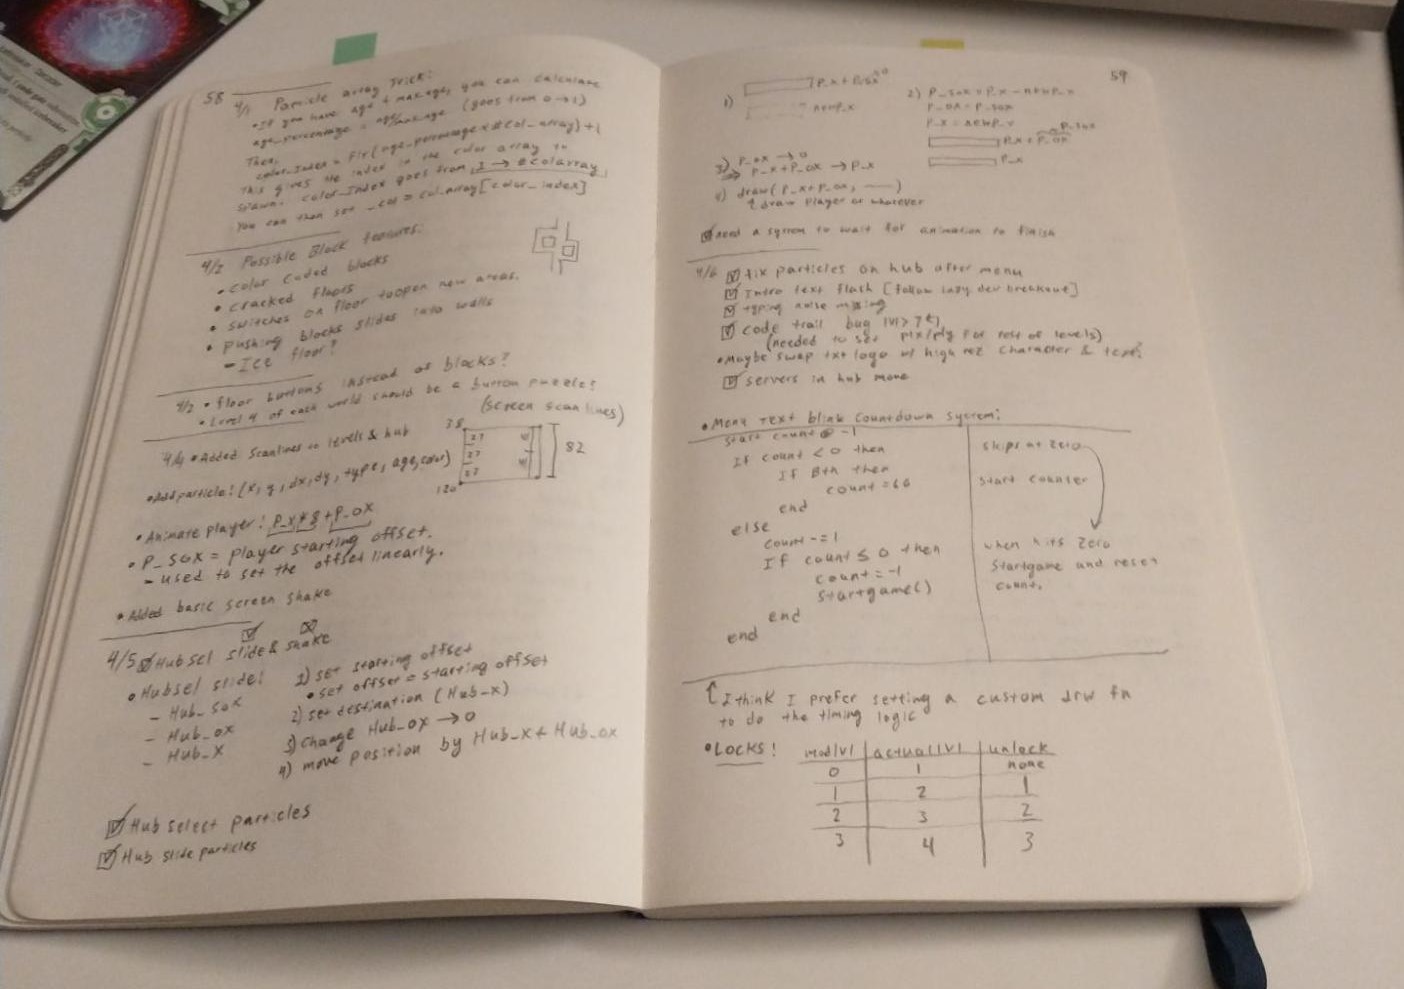 58
4/1 Particle array trick:
• If you have age & maxage, you can calculate
age_percentage = age/maxage (goes from 0→1)
Then,
color_index = flr(age_percentage * #col_array)+1
This gives the index in the color array to
color_index goes from 1 → #colarray
You can then set _col = col_array[color_index]
4/2 Possible Block features:
• Color coded blocks
• cracked floors
• switches on floor to open new areas.
• pushing blocks slides into walls
- Ice floor?
4/2 • floor buttons instead of blocks?
• Level 4 of each world should be a button puzzle?
(screen scanlines)
4/4 • Added Scanlines to levels & hub
38
27
27
27
41
41
82
120
• Addparticle! (x, y, dx, dy, type, age, color)
• Animate player! P_x*8 + P_ox
• P_sox = player starting offset.
- used to set the offset linearly.
• Added basic screen shake
4/5 Hubsel slide & shake
• Hubsel slide!
- Hub_sox
- Hub_ox
- Hub_x
1) set starting offset
• set offset = starting offset
2) set destination (Hub_x)
3) change Hub_ox → 0
4) move position by Hub_x + Hub_ox
Hub select particles
Hub slide particles
59
1) P_x + P_sox
newP_x
2) P_sox = P_x - newP_x
P_ox = P_sox
P_x = newP_x
P_sox
P_x + P_ox
P_x
3) P_ox → 0
P_x + P_ox → P_x
4) draw( P_x + P_ox, —— )
draw player or whatever
need a system to wait for animation to finish
4/6 fix particles on hub after menu
Intro text flash [follow lazy dev breakout]
typing noise missing
code trail bug lvl > 7
(needed to set plx/ply for rest of levels)
• Maybe swap txt logo w/ high rez character & text?
servers in hub move
• Menu Text blink Countdown system:
start count @ -1
If count < 0 then
If Btn then
count = 60
end
else
count -= 1
If count ≤ 0 then
count = -1
startgame()
end
end
skips at zero
start counter
when hits zero
startgame and reset
count.
↑ I think I prefer setting a custom drw fn
to do the timing logic
• LOCKS!
modlvl actuallvl unlock
0 1 none
1 2 1
2 3 2
3 4 3